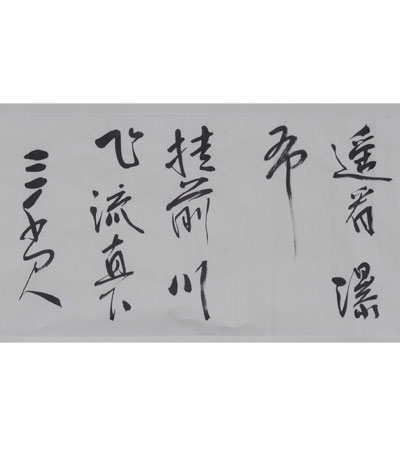 遥看瀑
布
挂前川
飞流直下
三千尺